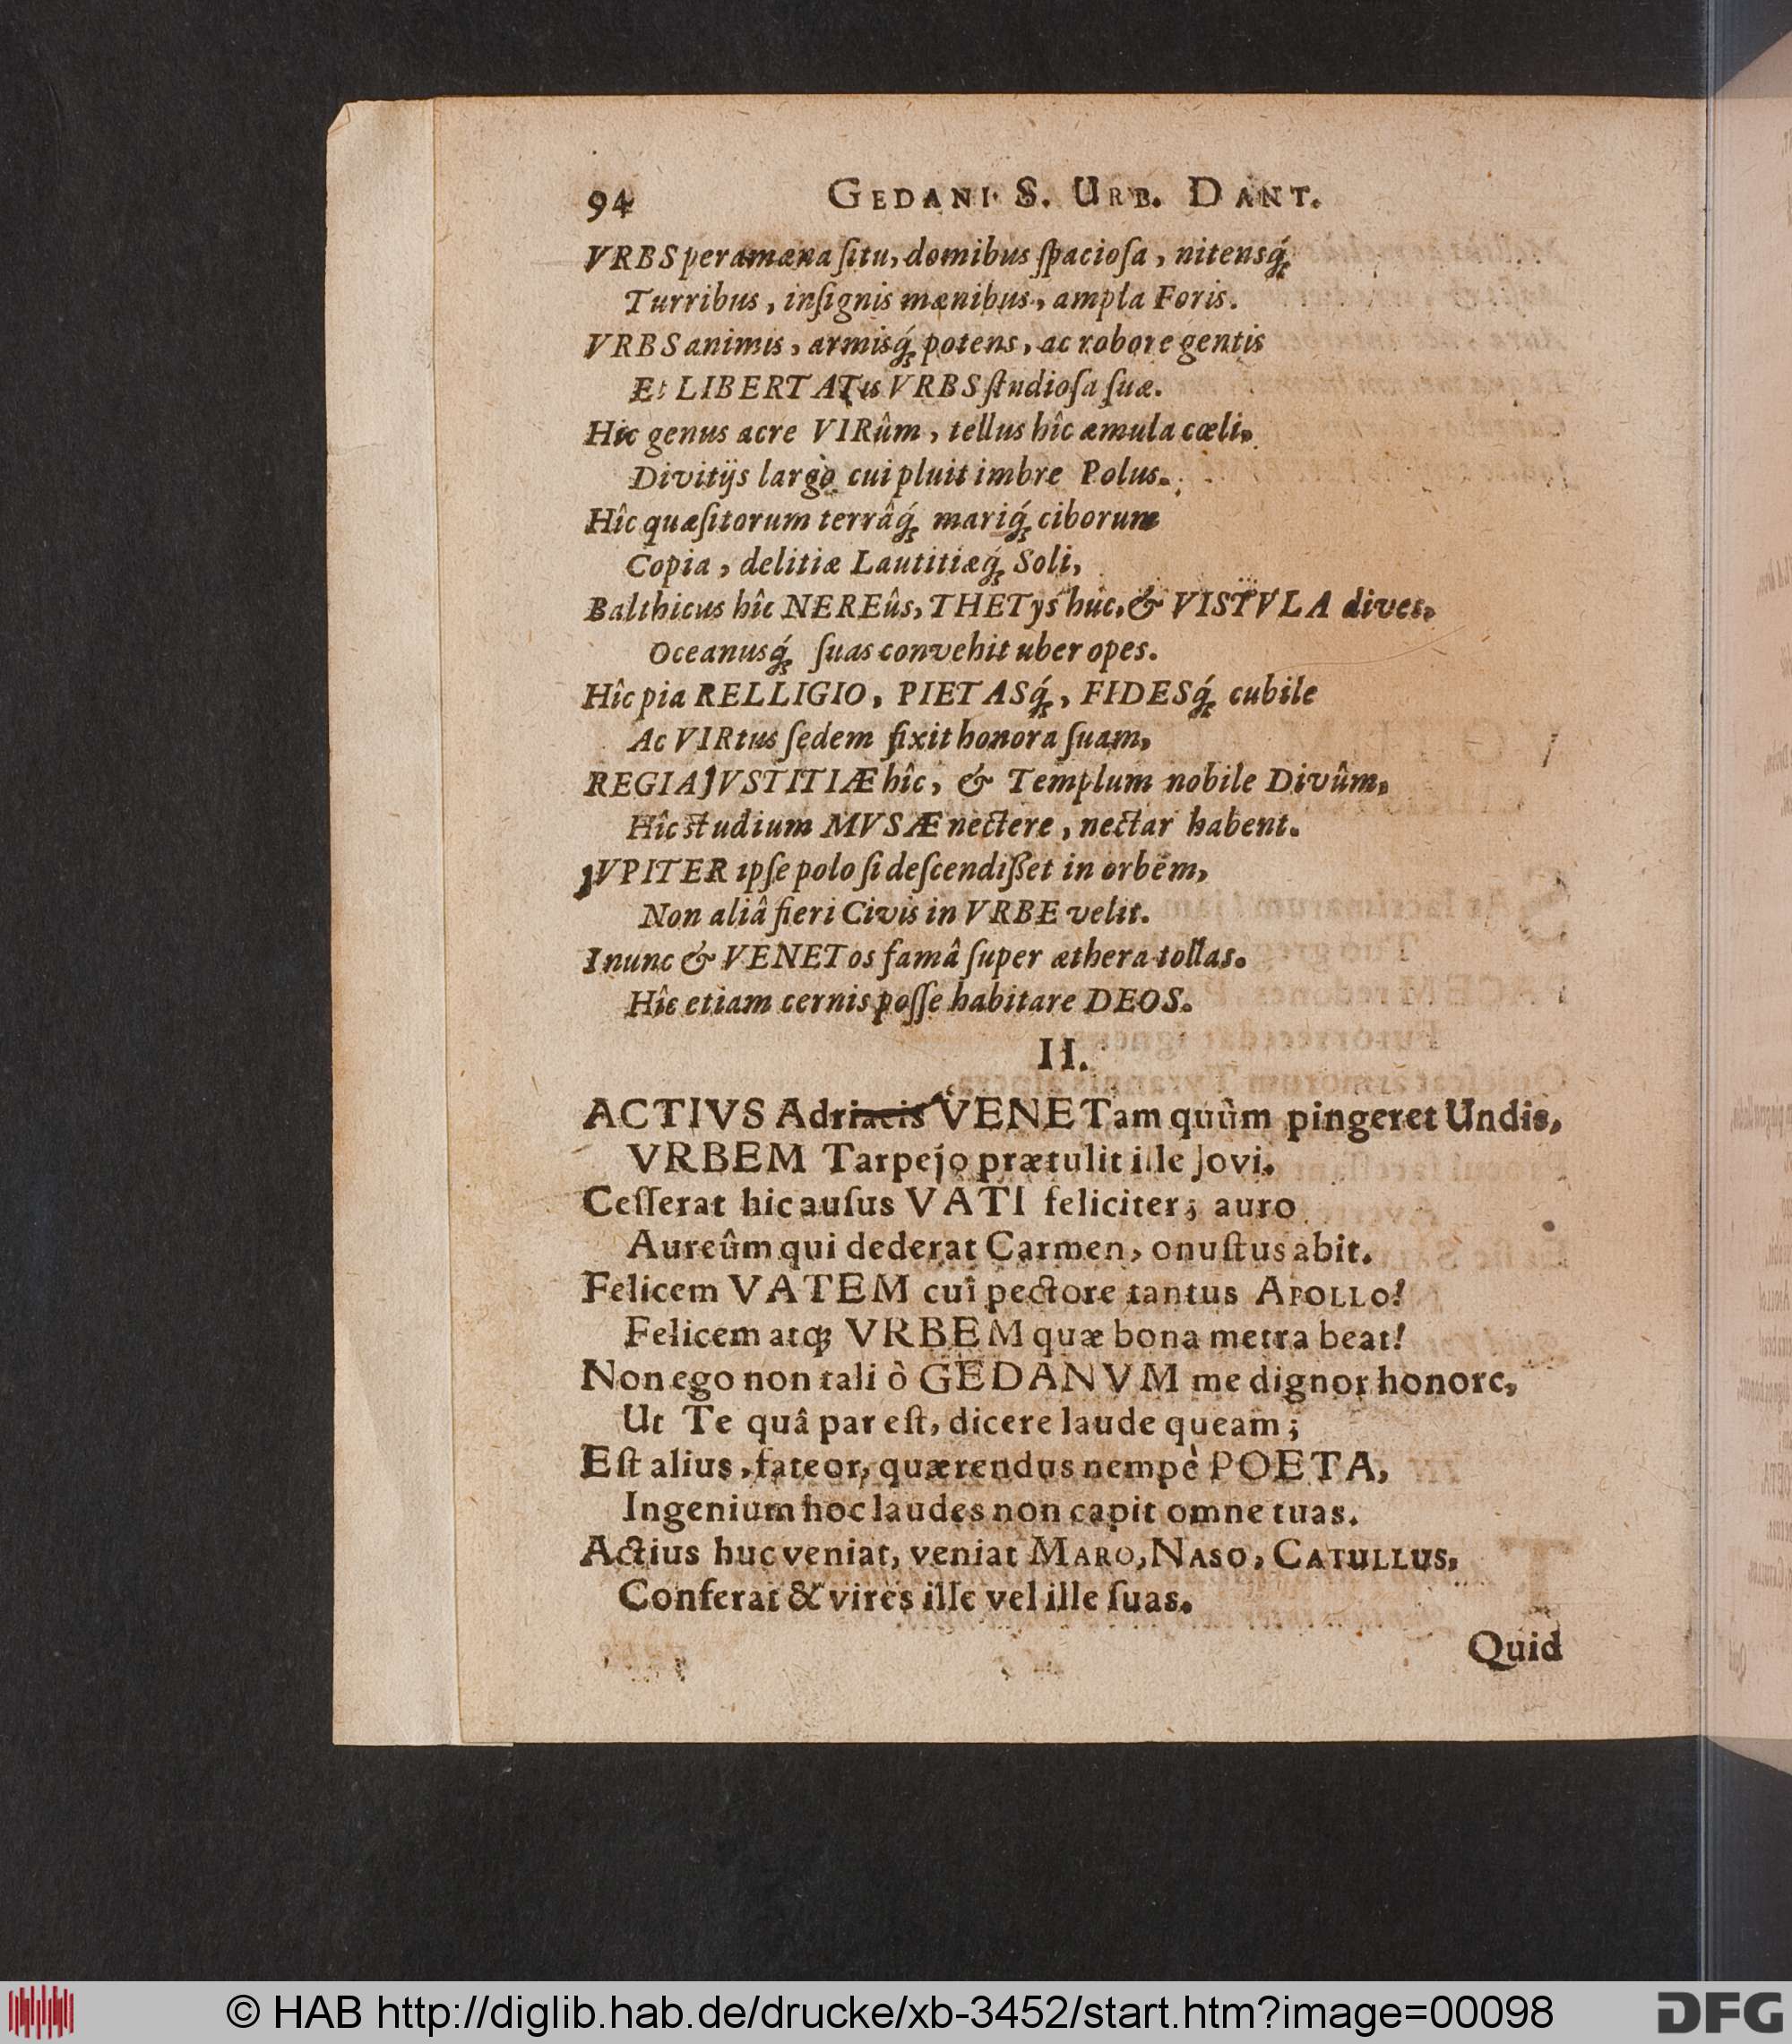 94 GEDANI S. URB. DANT.
VRBS peramœna ſitu, domibus ſpacioſa, nitensq́;
Turribus, inſignis mœnibus, ampla Foris.
VRBS animis, armisq́; potens, ac robore gentis
Et LIBERTATis VRBS ſtudioſa ſuæ.
Hic genus acre VIRûm, tellus hîc æmula cœli,
Divitijs largo cui pluit imbre Polus.
Hîc quæſitorum terrâq́; mariq́; ciborum
Copia, delitiæ Lautitiæq́; Soli,
Balthicus hîc NEREûs, THETys huc, & VISTVLA dives,
Oceanusq́; ſuas convehit uber opes.
Hîc pia RELLIGIO, PIETASq́;, FIDESq́; cubile
Ac VIRtus ſedem fixit honora ſuam,
REGIA JVSTITIÆ hîc, & Templum nobile Divûm,
Hîc ſtudium MVSÆ nectere, nectar habent.
JVPITER ipſe polo ſi deſcendiſſet in orbem,
Non aliâ fieri Civis in VRBE velit.
I nunc & VENETos famâ ſuper æthera tollas.
Hîc etiam cernis poſſe habitare DEOS.
II.
ACTIVS Adriacis VENETam quûm pingeret Undis,
VRBEM Tarpejo prætulit ille Jovi.
Ceſſerat hic auſus VATI feliciter; auro
Aureûm qui dederat Carmen, onuſtus abit.
Felicem VATEM cui pectore tantus APOLLO!
Felicem atq; VRBEM quæ bona metra beat!
Non ego non tali ô GEDANVM me dignor honore,
Ut Te quâ par eſt, dicere laude queam;
Eſt alius, fateor, quærendus nempè POETA,
Ingenium hoc laudes non capit omne tuas.
Actius huc veniat, veniat MARO, NASO, CATULLUS,
Conferat & vires ille vel ille ſuas.
Quid
© HAB http://diglib.hab.de/drucke/xb-3452/start.htm?image=00098
DFG